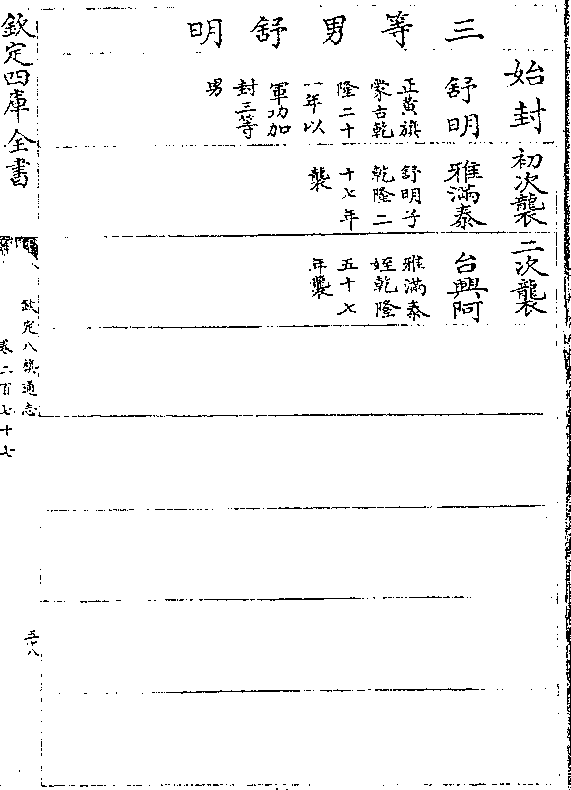 三等男舒明
始封
舒明
正黄旗
蒙古乾
隆二十
一年以
軍功加
封三等
男
初次襲
雅滿泰
舒明子
乾隆二
十七年
襲
二次襲
台興阿
雅滿泰
姪乾隆
五十七
年襲
欽定四庫全書
欽定八旗通志
卷二百七十七
五十八